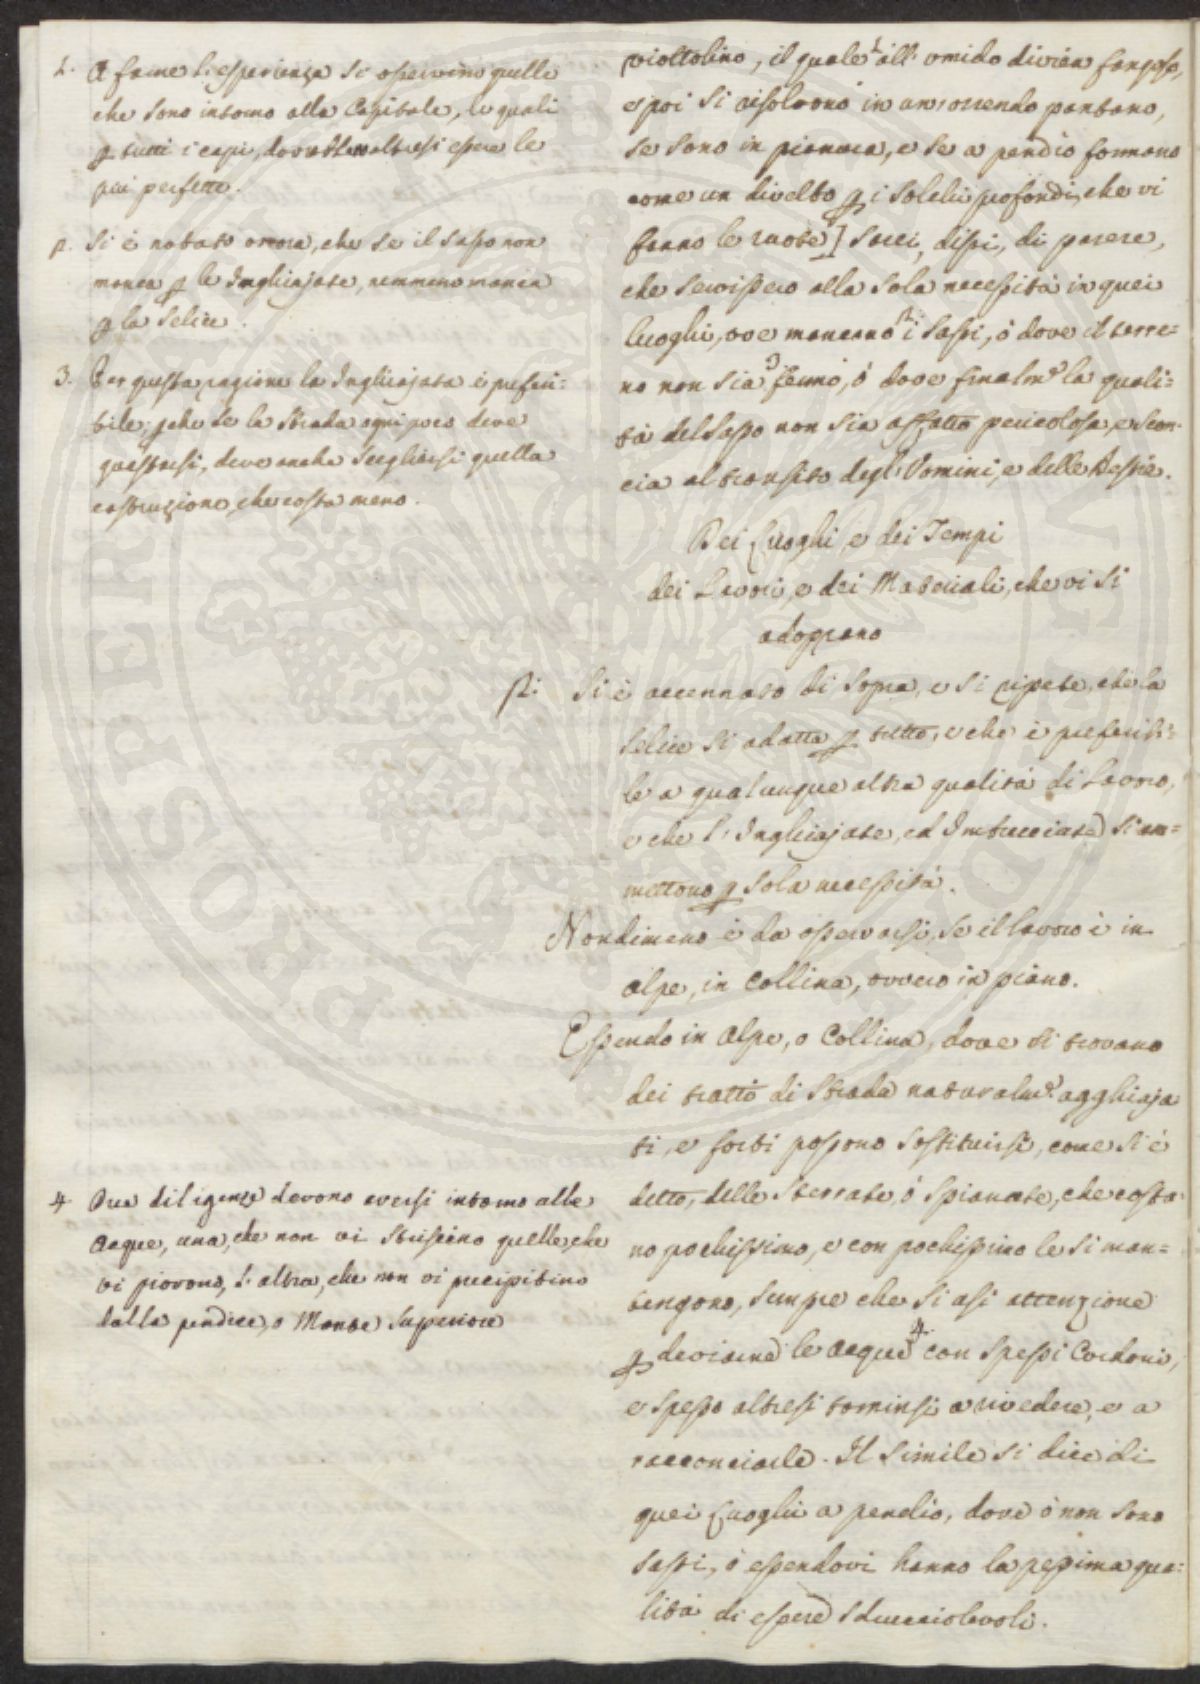 1. A farne l'esperienza si osservino quelle
che sono intorno alla Capitale, le quali
p tutti i capi, dovrebbero altresi essere le
più perfette.
2. Si è notato ancora, che se il sasso non
manca p le Inghiajate, nemmeno manca
p la selice.
3. Per questa ragione la Inghiajata è preferi=
bile; pche se la Strada ogni poco deve
guastarsi, deve anche scegliersi quella
costruzione, che costa meno.
4 Due diligenze devono aversi intorno alle
Acque, una, che non vi strisciino quelle, che
vi piovono, l'altra, che non vi precipitino
dalla pendice, o Monte Superiore
viottolino, il quale 1 all' umido divien fangoso,
e poi si risolvono in un orrendo pantano,
se sono in pianura, e se a pendio formano
come un divelto p i solchi profondi, che vi
fanno le ruote] sarei, dissi, di parere,
che servissero alla sola necessità in quei
luoghi, ove mancano 2. i sassi, ò dove il terre=
no non sia 3 fermo, ò dove finalme la quali=
tà del sasso non sia affatto pericolosa, e scon=
cia al transito degl' Uomini, e delle Bestie.
Dei Luoghi, e dei Tempi
dei Lavori, e dei Materiali, che vi si
adoprano
Si è accennato di sopra, e si ripete, che la
selice si adatta p tutto, e che è preferibi=
le a qualunque altra qualità di Lavoro,
e che l' Inghiajate, ed Imbrecciate si am=
mettono p sola necessità.
Nondimeno è da osservarsi, se il lavoro è in
Alpe, in Collina, ovvero in piano.
Essendo in Alpe, o Collina, dove si trovano
dei tratti di Strada naturalme agghiaja
ti, e forti possono sostituirsi, come si è
detto, delle Sterrate, ò Spianate, che costa=
no pochissimo, e con pochissimo le si man=
tengono, sempre che si usi attenzione
p deviarne le Acque 4. con spessi Cordoni,
e spesso altresi torninsi a rivedere, e a
racconciarle. Il simile si dice di
quei Luoghi a pendio, dove ò non sono
sassi, ò essendovi hanno la pessima qua=
lità di essere sdrucciolevoli.